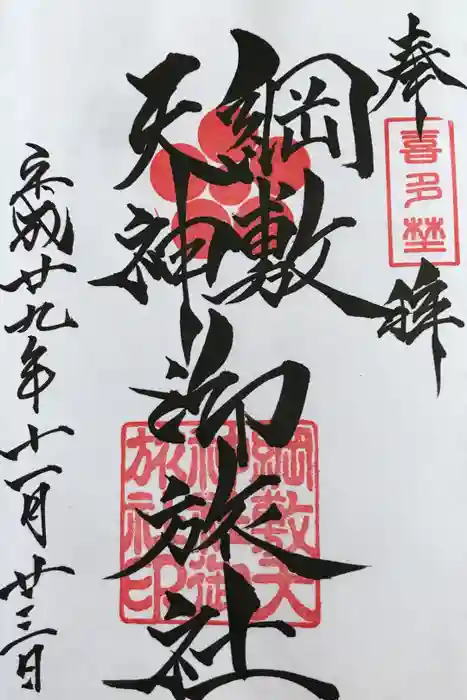 奉拝
喜多埜
綱敷
天神
御旅社
綱敷天
神社御
旅社印
平成廿九年十一月廿三日